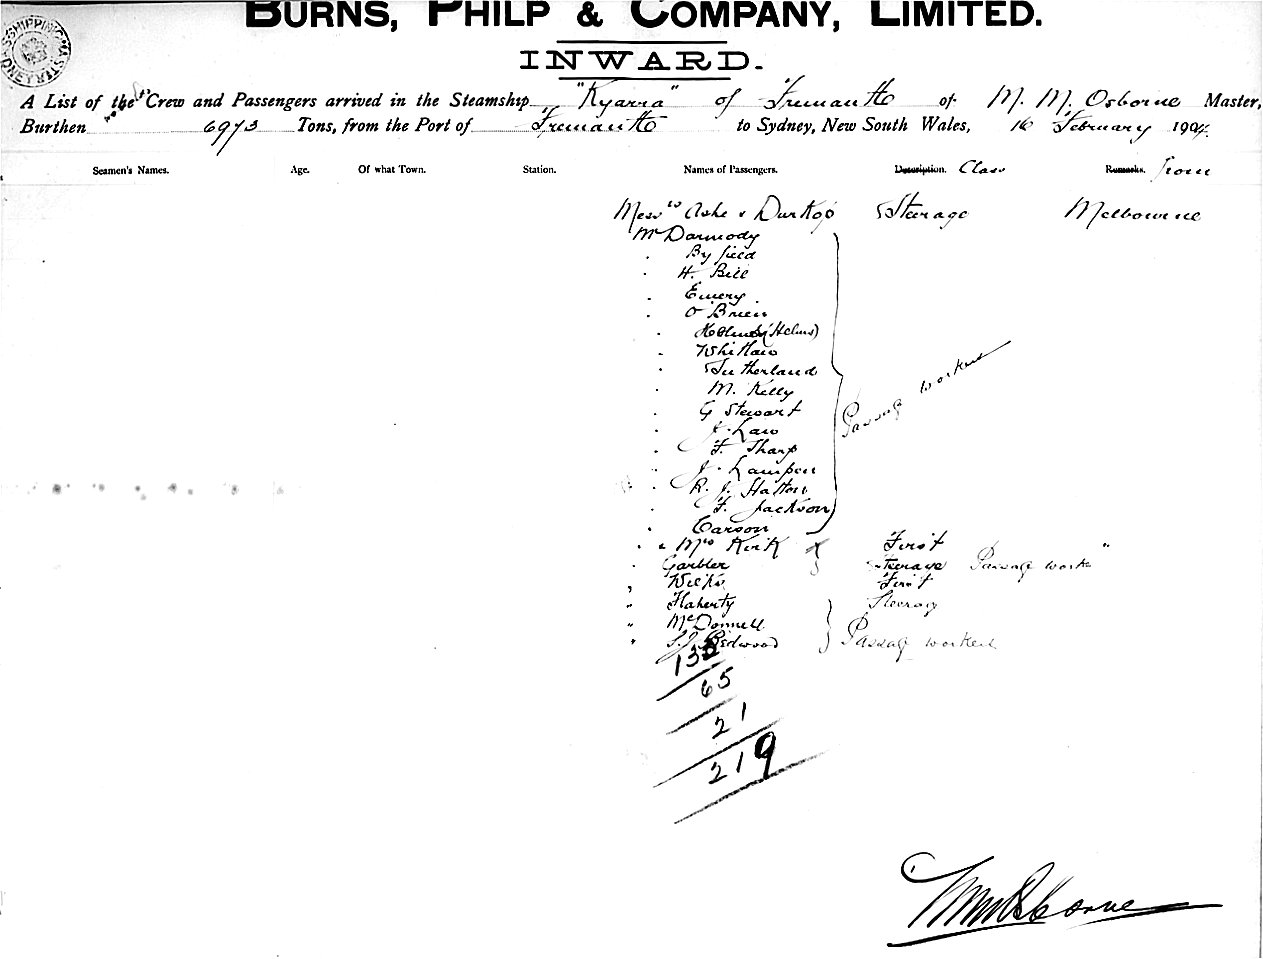 BURNS, PHILP & COMPANY, LIMITED.
INWARD.
A List of the Crew and Passengers arrived in the Steamship "Kyarra" of Fremantle of M. M. Osborne Master,
Burthen 6973 Tons, from the Port of Fremantle to Sydney, New South Wales, 16 February 1904.
Seamen's Names. Age. Of what Town. Station. Names of Passengers. Description. Class Remarks. from
Messrs Ashe & Dunlop Steerage Melbourne
Mr Darmody
" Byfield
" H. Bell
" Emery
" O'Brien
" (Helms)
" Whitlaw
" Sutherland
" M. Kelly
" G Stewart
" J. Law
" F. Tharp
" J. Lampen
" R. J. Hatton
" F. Jackson
" Carson
Passage workers
" & Mrs Kirk First
" Garbler Steerage Passage work
" Wilks First
" Flaherty Steerag
" McDonnell
" S. J. Redwood Passag workers
133
65
21
219
MMOsborne